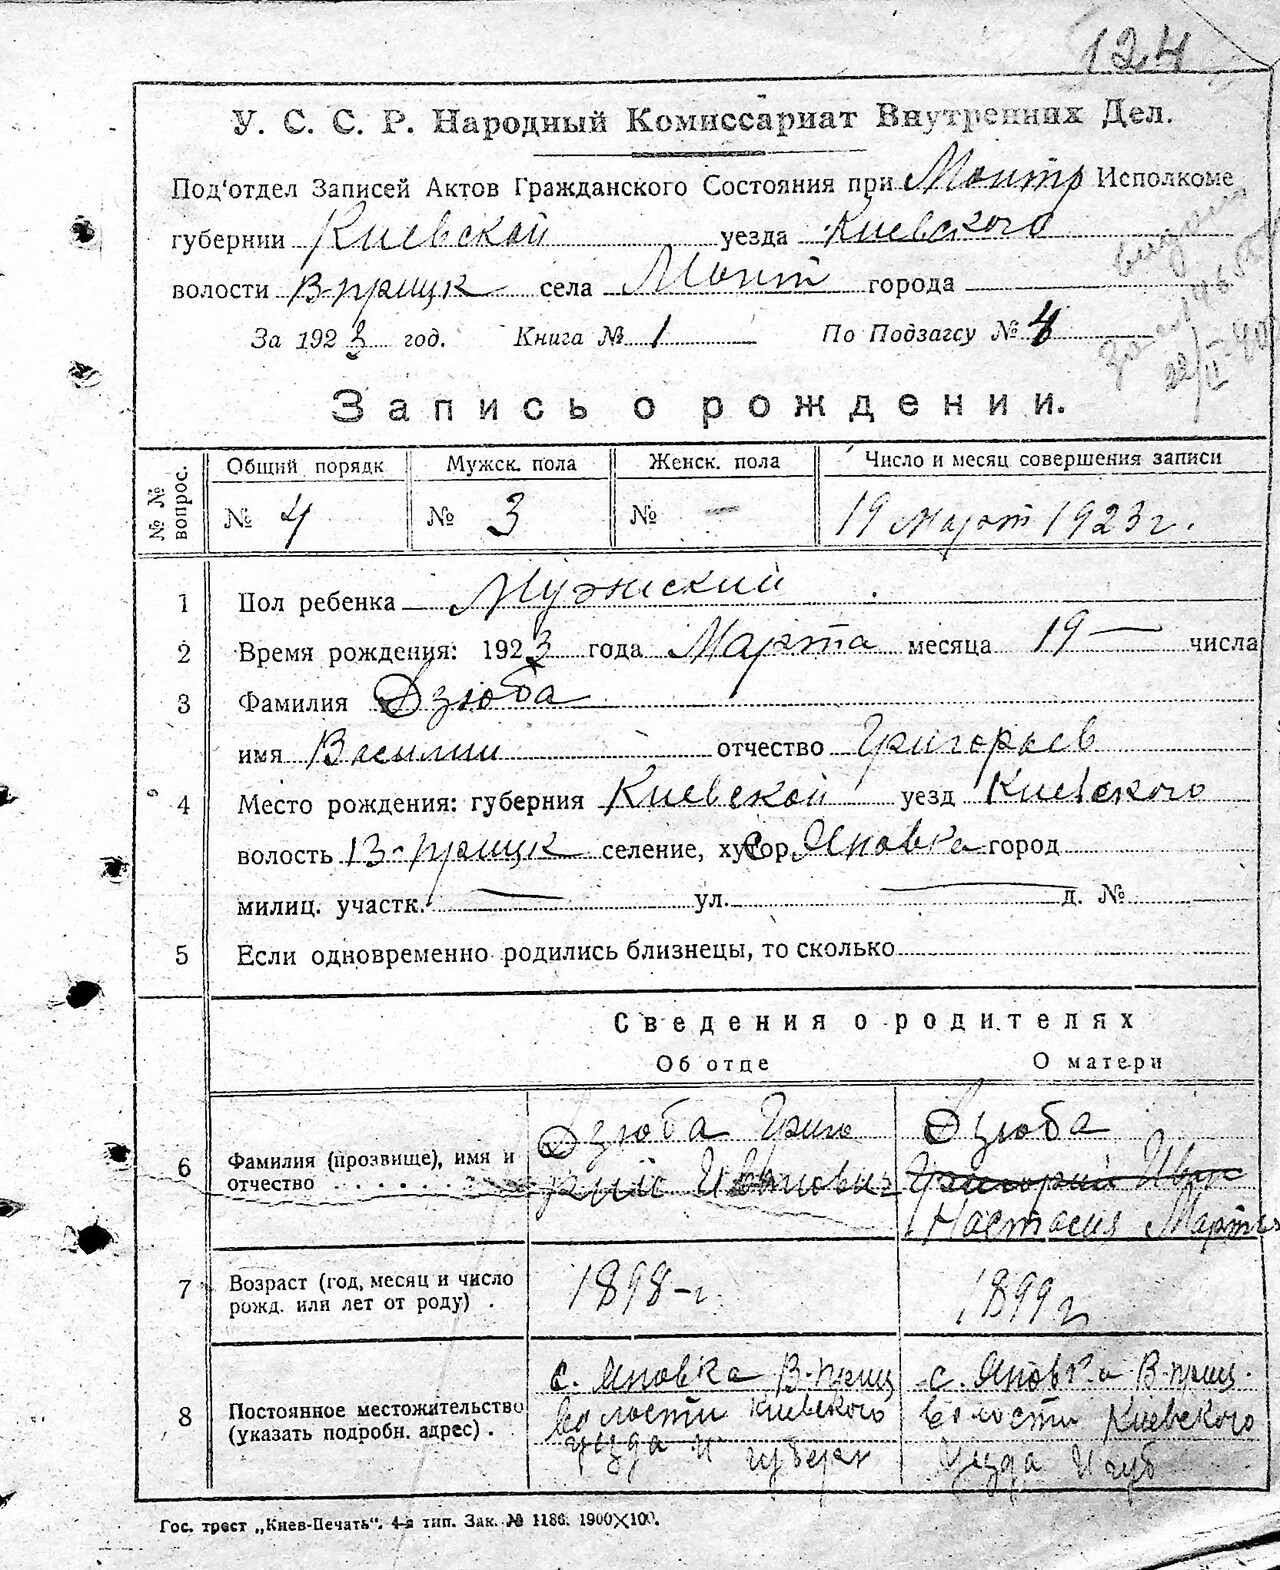 124
У. С. С. Р. Народный Комиссариат Внутренних Дел.
Под'отдел Записей Актов Гражданского Состояния при Исполкоме
губернии Киевской уезда Киевского
волости В-прицк села города
За 1923 год. Книга № 1 По Подзагсу № 4
22/II-40
Запись о рождении.
№ № вопрос. Общий порядк Мужск. пола Женск. пола Число и месяц совершения записи
№ 4 № 3 № — 19 март 1923 г.
1 Пол ребенка Мужиский
2 Время рождения: 1923 года Марта месяца 19 — числа
3 Фамилия Дзюба
имя Василии отчество Григорьев
4 Место рождения: губерния Киевской уезд Киевского
волость В-прицк селение, хутор, с Яновка город
милиц. участк. — ул. — д. №
5 Если одновременно родились близнецы, то сколько
Сведения о родителях
Об отце О матери
6 Фамилия (прозвище), имя и отчество . . . . . .
Дзюба Григо
рий Иванович
Дзюба
Григорий Иван
Настасия Марты
7 Возраст (год, месяц и число рожд. или лет от роду) .
1898-г.
1899 г.
8 Постоянное местожительство (указать подробн. адрес) .
с. Яновка В-приц
волости Киевского
уезда и губерн
с. Яновка В-приц.
волости Киевского
Уезда и губ
Гос. трест „Киев-Печать". 4-я тип. Зак. № 1186. 1900×100.